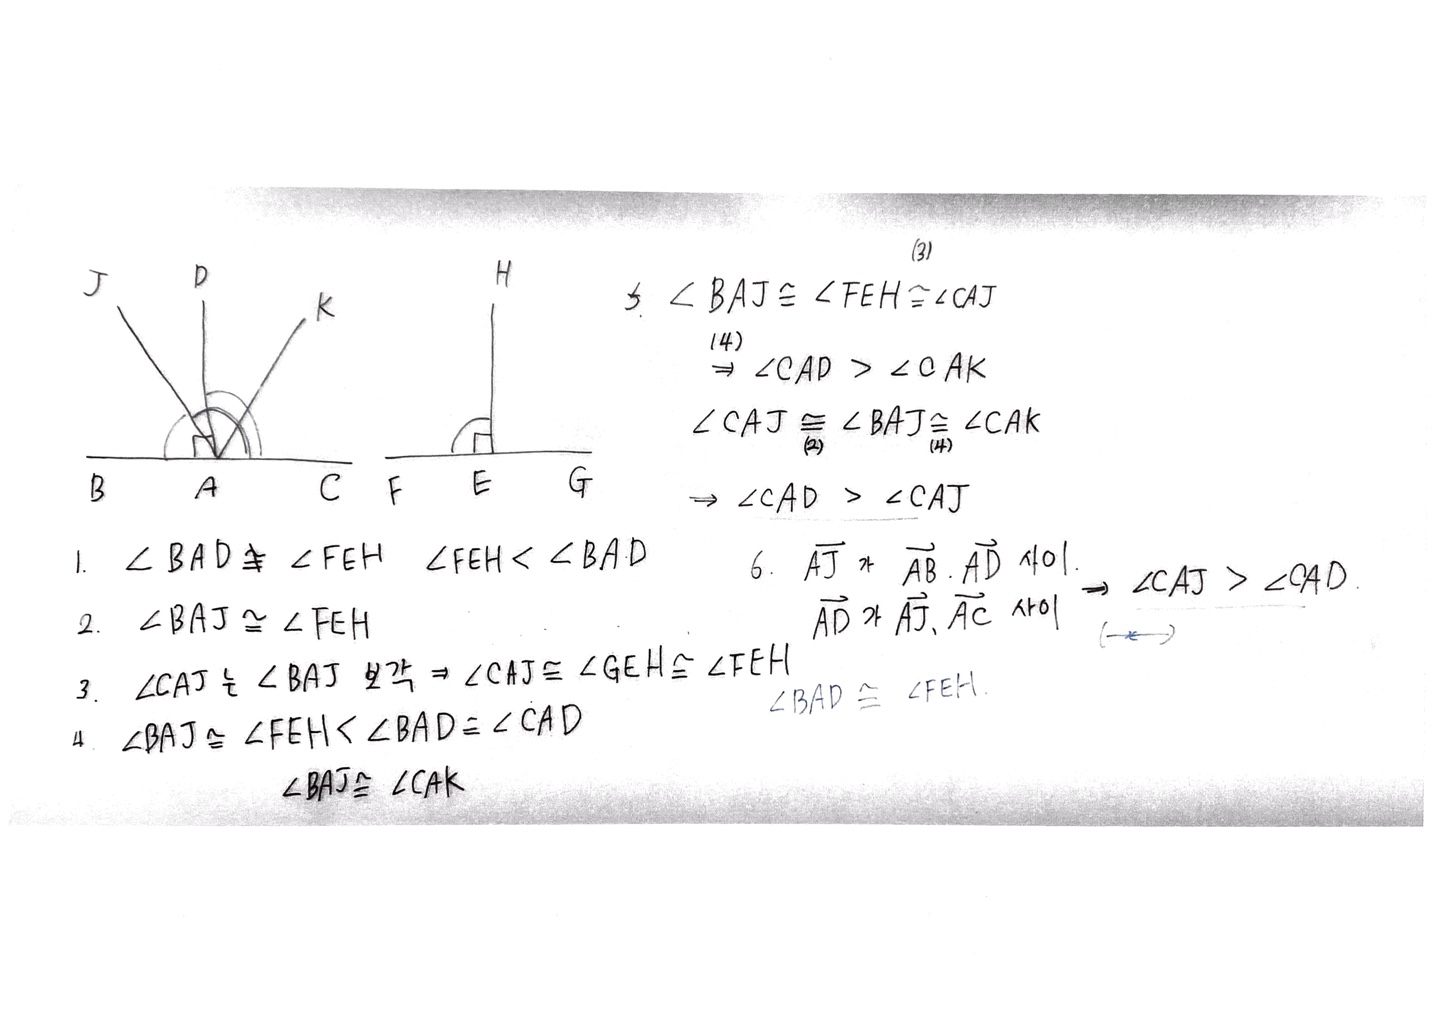 J D K
B A C
H
F E G
1. ∠BAD ≇ ∠FEH ∠FEH < ∠BAD
2. ∠BAJ ≅ ∠FEH
3. ∠CAJ는 ∠BAJ 보각 ⇒ ∠CAJ ≅ ∠GEH ≅ ∠FEH
4. ∠BAJ ≅ ∠FEH < ∠BAD ≅ ∠CAD
∠BAJ ≅ ∠CAK
(3)
5. ∠BAJ ≅ ∠FEH ≅ ∠CAJ
(4)
⇒ ∠CAD > ∠CAK
∠CAJ ≅ ∠BAJ ≅ ∠CAK
(2) (4)
⇒ ∠CAD > ∠CAJ
6. AJ→가 AB→. AD→ 사이.
AD→가 AJ→, AC→ 사이
⇒ ∠CAJ > ∠CAD.
∠BAD ≅ ∠FEH.